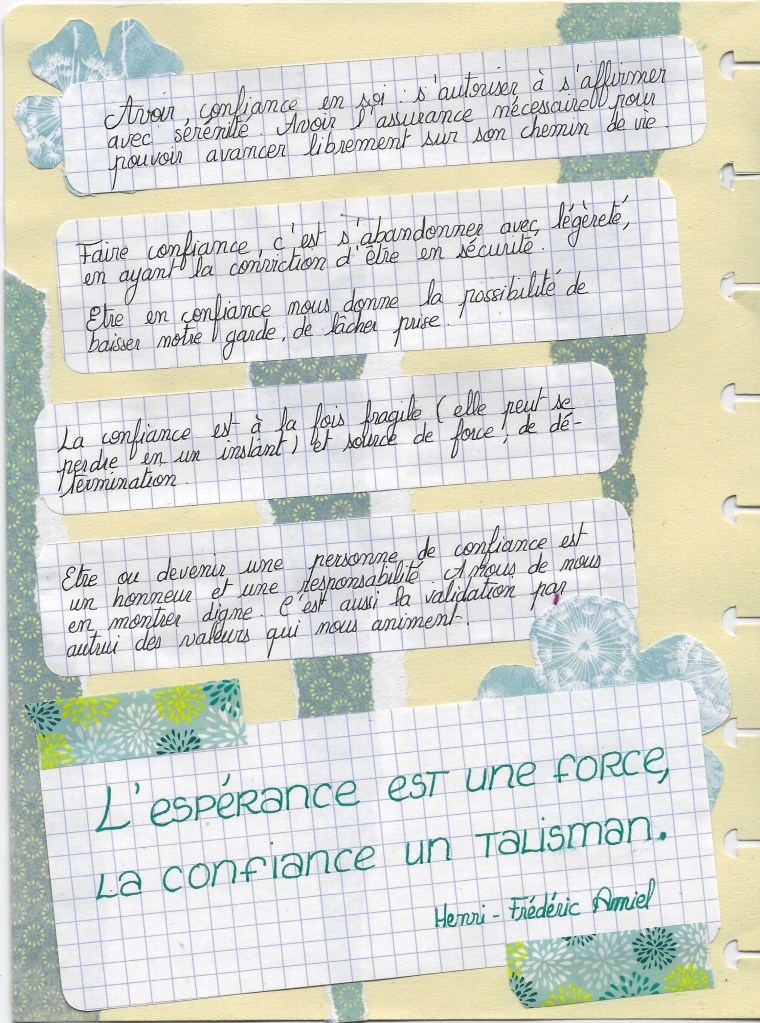 Avoir confiance en soi : s'autoriser à s'affirmer
avec sérénité. Avoir l'assurance nécessaire pour
pouvoir avancer librement sur son chemin de vie.
Faire confiance, c'est s'abandonner avec légèreté,
en ayant la conviction d'être en sécurité.
Etre en confiance nous donne la possibilité de
baisser notre garde, de lâcher prise.
La confiance est à la fois fragile (elle peut se
perdre en un instant) et source de force, de dé-
termination.
Etre ou devenir une personne de confiance est
un honneur et une responsabilité. A nous de nous
en montrer digne. C'est aussi la validation par
autrui des valeurs qui nous animent.
L'espérance est une force,
la confiance un talisman.
Henri-Frédéric Amiel